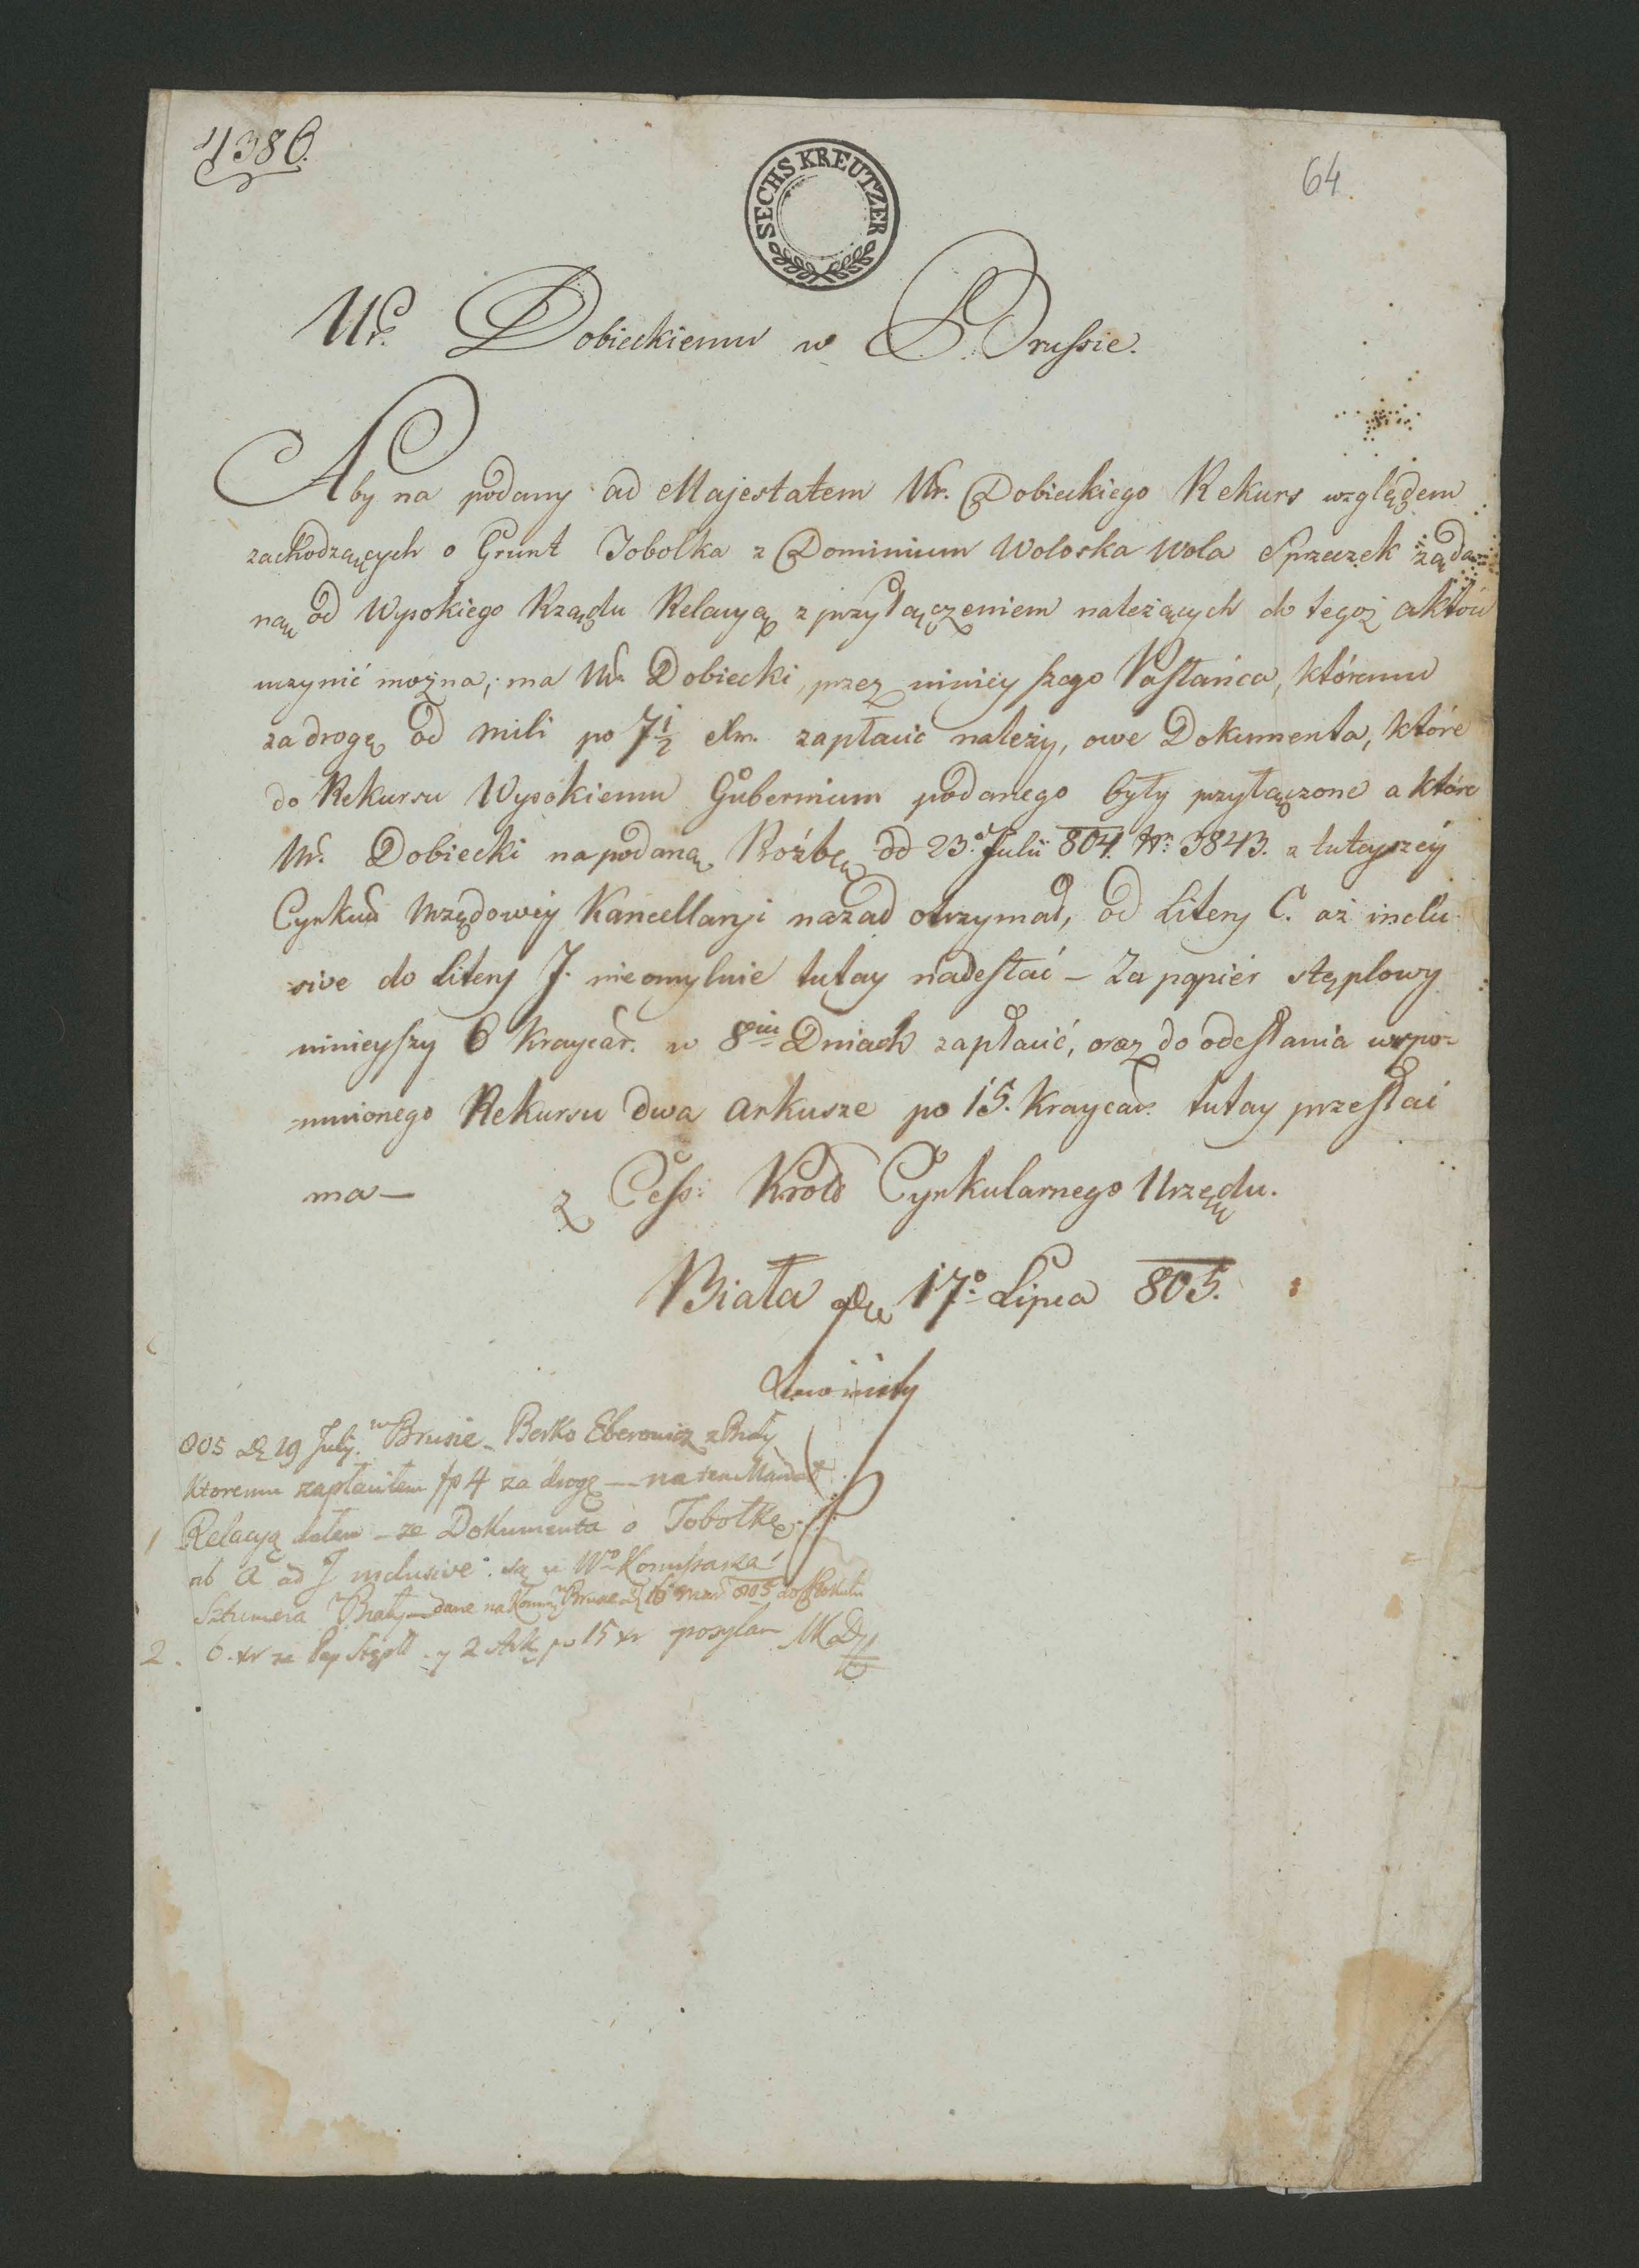 4386.
64
SECHS KREUTZER
Ur. Dobieckiemu w Brussie.
Aby na podany ad Majestatem Ur. Dobieckiego Rekurs względem
zachodzących o Grunt Tobolka z Dominium Woloska Wola Sprzeczek żąda
ną od Wysokiego Rządu Relacyą z przyłączeniem należących do tegoż aktów
uczynić można; ma Ur. Dobiecki, przez ninieyszego Posłańca, któremu
za drogę od mili po 7½ xr. zapłacić należy, owe Dokumenta, które
do Rekursu Wysokiemu Gubernium podanego były przyłączone a które
Ur. Dobiecki na podaną Proźbę dd 23. Julii 804. Nr. 3843. z tuteyszéy
Cyrkuł Urzędowéy Kancellaryi nazad otrzymał, od Litery C. aż inclu-
sive do Litery J. nieomylnie tutay nadesłać – Za papiér stęplowy
ninieyszy 6 Kraycar. w 8miu Dniach zapłacić, oraz do odesłania wspo-
mnionego Rekursu dwa Arkusze po 15. Kraycar. tutay przesłać
ma — z Cess: Król Cyrkularnego Urzędu.
Biała de 17o Lipca 805.
805 D 19 July. w Brusie – Berko Eberowicz z Biały
Ktoremu zapłaciłem fp 4 za drogę — na ten Mandat
1 Relacyą dałem – ze Dokumenta o Tobołkę
ab A ad J inclusive. są u Wo Komissarza
Sztumera Biały – dane na Kom w Brusie D 16 805 do
2. 6. xr za Pap Stępl. y 2 Ark po 15 xr posyłam MD